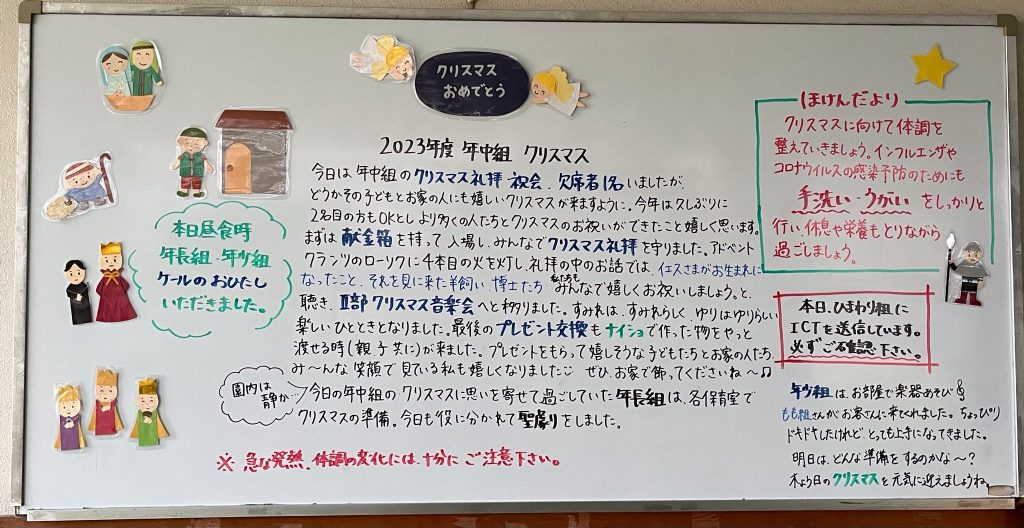 クリスマス
おめでとう
2023年度 年中組 クリスマス
今日は年中組のクリスマス礼拝・祝会、欠席者1名いましたが、
どうかその子どもとお家の人にも嬉しいクリスマスが来ますように。今年は久しぶりに
2名目の方もOKとし より多くの人たちとクリスマスのお祝いができたこと嬉しく思います。
まずは献金箱を持って入場し、みんなでクリスマス礼拝を守りました。アドベント
クランツのローソクに4本目の火を灯し、礼拝の中のお話では、イエスさまがお生まれに
なったこと、それを見に来た羊飼い、博士たち 私たちもみんなで嬉しくお祝いしましょう。と、
聴き、Ⅱ部クリスマス音楽会へと移りました。すみれは、すみれらしく、ゆりはゆりらしい
楽しいひとときとなりました。最後のプレゼント交換もナイショで作った物をやっと
渡せる時(親、子共に)が来ました。プレゼントをもらって嬉しそうな子どもたちとお家の人たち、
み〜んな笑顔で見ている私も嬉しくなりました ぜひ、お家で飾ってくださいね〜♫
園内は
静か…
今日の年中組のクリスマスに思いを寄せて過ごしていた年長組は、各保育室で
クリスマスの準備。今日も役に分かれて聖劇りをしました。
※ 急な発熱、体調の変化には、十分にご注意下さい。
本日昼食時
年長組、年少組
ケールのおひたし
いただきました。
ほけんだより
クリスマスに向けて体調を
整えていきましょう。インフルエンザや
コロナウイルスの感染予防のためにも
手洗い・うがいをしっかりと
行い、休息や栄養もとりながら
過ごしましょう。
本日、ひまわり組に
ICTを送信しています。
必ずご確認下さい。
年少組は、お部屋で楽器あそび
もも組さんがお客さんに来てくれました。ちょっぴり
ドキドキしたけれど、とっても上手になってきました。
明日は、どんな準備をするのかな〜?
木よう日のクリスマスを元気に迎えましょうね。